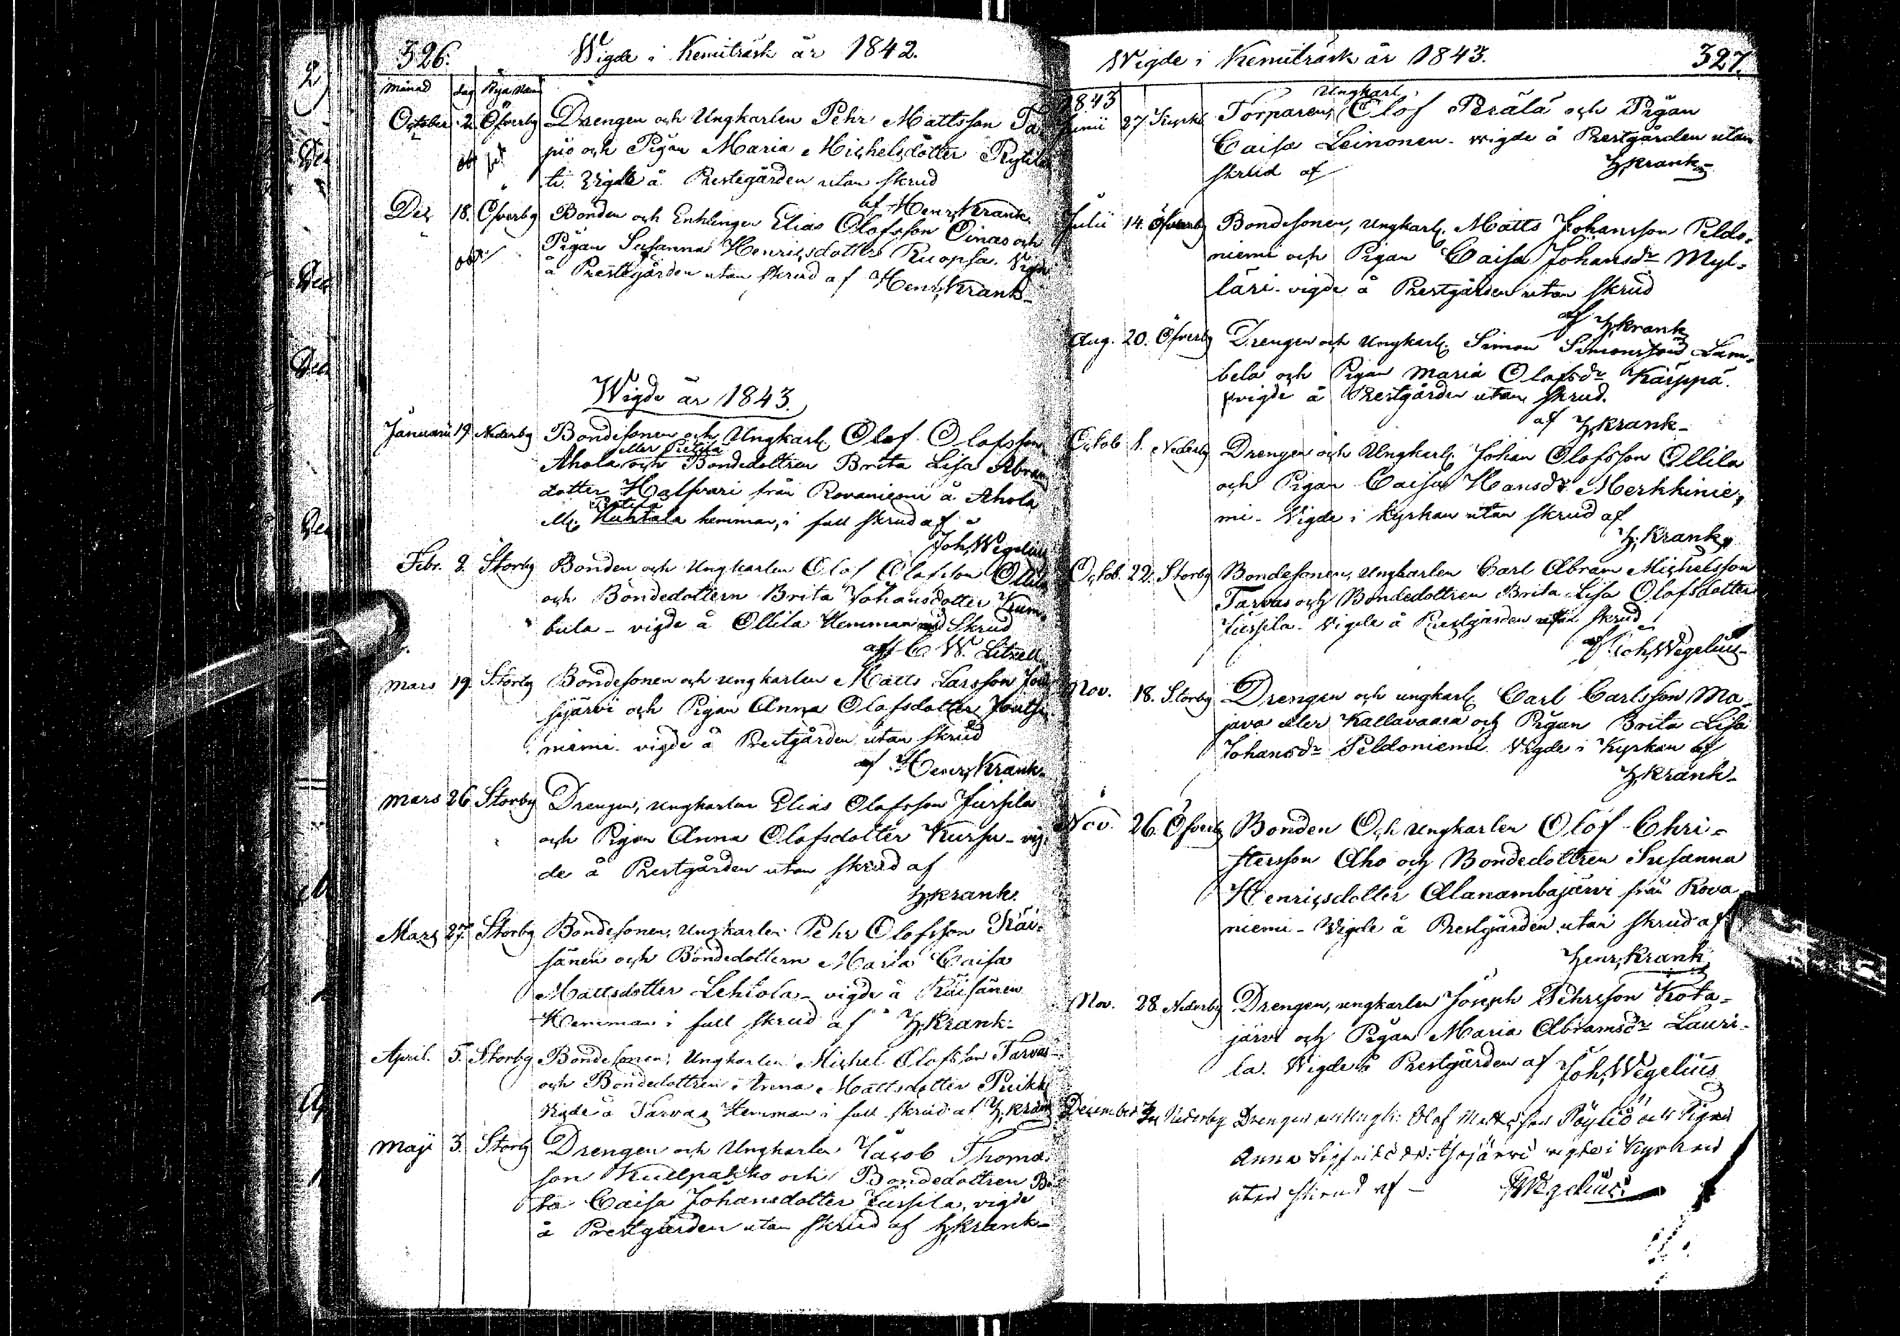 326.
Wigde i Kemiträsk år 1842.
Månad dag Bya Namn
October 2. Öfverby Drengen och Ungkarlen Pehr Mattsson Ta-
pio och Pigan Maria Michelsdotter
Vigde å Prestegården utan skrud
af Henr, Krank
Dec, 18. Öfverby Bonden och Enklingen Elias Olofsson Oinas och
obs: Pigan Susanna Henricsdotter Ruopsa. Vigde
å Prestegården utan skrud af Henr, Krank-
Wigde år 1843.
Januarii 19. Nederby Bondesonen och Ungkarl, Olof Olofsson
eller Pietilä
Ahola och Bondedottren Brita Lisa Abram
dotter Halfvari från Rovaniemi å Ahola
Huhtala hemman, i full skrud af
Joh, Wegelius
Febr. 2. Storby Bonden och Ungkarlen Olof Olofsson Ollila
och Bondedottern Brita Johansdotter Kum-
bula - vigde å Ollila Hemman med Skrud
af C W. Litzell.
Mars 19. Storby Bondesonen och ungkarlen Matts Larsson Jou-
sijärvi och Pigan Anna Olofsdotter Joutsi-
niemi. vigde å Prestgården utan skrud
af Henr, Krank-
Mars 26 Storby Drengen, ungkarlen Elias Olofsson Jussila
och Pigan Anna Olofsdotter Kursu - vig-
de å Prestgården utan skrud af
H, Krank.
Mars 27. Storby Bondesonen, ungkarlen Pehr Olofsson Räi-
sänen och Bondedottern Maria Caisa
Mattsdotter Lehtola - vigde å Räisänen
Hemman i full skrud af H, Krank-
April. 5. Storby Bondesonen, Ungkarlen Michel Olofsson Tarvas
och Bondedottren Anna Mattsdotter Puikk
Vigde å Tarvas Hemman i full skrud af H, Krank
Maji 3. Storby Drengen och Ungkarlen Jacob Thomas-
son Kullpakko och Bondedottren Bri-
ta Caisa Johansdotter Jussila, vigde
å Prestgården utan skrud af H, Krank-
Wigde i Kemiträsk år 1843.
327.
1843
Ungkarl,
Junii 27. Torparen, Olof Perälä och Pigan
Caisa Leinonen. vigde å Prestgården utan
skrud af H, Krank-
Julii 14. Öfverby Bondesonen, ungkarl, Matts Johansson Peldo-
niemi och Pigan Caisa Johansdr Myl-
läri. vigde å Prestgården utan skrud
af H, Krank
Aug. 20. Öfverby Drengen och ungkarl, Simon Simonsson Lam-
bela och Pigan Maria Olofsdr Käippä.
vigde å Prestgården utan skrud.
af H, Krank-
Octob 1. Nederby Drengen och Ungkarl, Johan Olofsson Ollila
och Pigan Caisa Hansdr Merkkinie-
mi - Vigde i Kyrkan utan skrud af
H, Krank,
Octob. 22. Storby Bondesonen, ungkarlen Carl Abram Michelsson
Tarvas och Bondedottren Brita Lisa Olofsdotter
Jussila. vigde å Prestgården utan skrud
af Joh, Wegelius
Nov. 18. Storby Drengen och ungkarl, Carl Carlsson Ma-
java eller Kallavaara och Pigan Brita Lisa
Johansdr Peldoniemi Vigde i Kyrkan af
H, Krank-
Nov. 26. Öfverby Bonden Och Ungkarlen Olof Chri-
stersson Aho och Bondedottren Susanna
Henricsdotter Alanambajärvi från Rova
niemi - Vigde å Prestgården utan skrud af
Henr, Krank
Nov. 28 Nederby Drengen, ungkarlen Joseph Pehrsson Kota-
järvi och Pigan Maria Abramsdr Lauri-
la. Vigde å Prestgården af Joh, Wegelius
December Nederby Drengen Olof Mattsson Pöyliö och Pigan
Anna vigde i Kyrkan
utan skrud af - Wegelius.